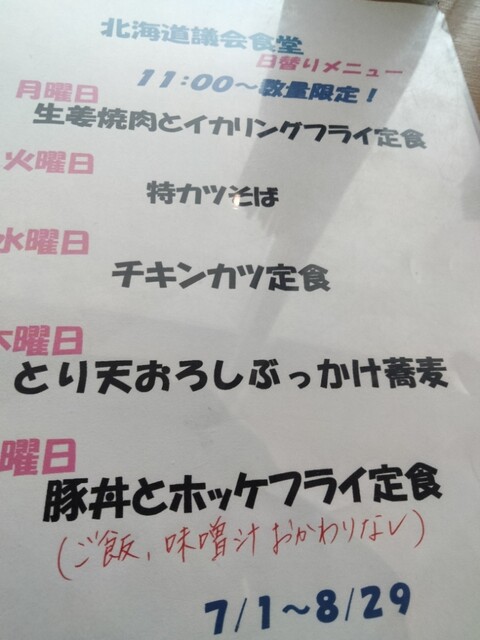 北海道議会食堂
日替りメニュー
11:00〜数量限定!
月曜日
生姜焼肉とイカリングフライ定食
火曜日
特カツそば
水曜日
チキンカツ定食
木曜日
とり天おろしぶっかけ蕎麦
曜日
豚丼とホッケフライ定食
(ご飯、味噌汁おかわりなし)
7/1〜8/29